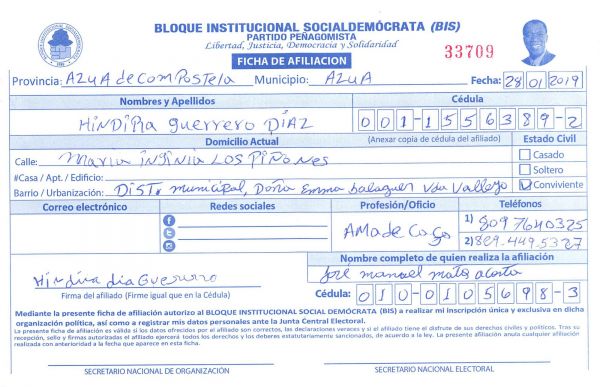 BLOQUE INSTITUCIONAL SOCIALDEMÓCRATA (BIS)
PARTIDO PEÑAGOMISTA
Libertad, Justicia, Democracia y Solidaridad
FICHA DE AFILIACION
33709
Provincia: AZUA de Compostela Municipio: AZUA Fecha: 28/01/2019
Nombres y Apellidos Cédula
Hindira Guerrero DÍAZ 001-1556389-2
Domicilio Actual (Anexar copia de cédula del afiliado) Estado Civil
Calle: María Los Piñones Casado
#Casa / Apt. / Edificio: Soltero
Barrio / Urbanización: Dist. municipal, Doña Emma balaguer Vda Vallejo Conviviente
Correo electrónico Redes sociales Profesión/Oficio Teléfonos
AMA de Casa 1) 809 7640325
2) 829-449-5327
Nombre completo de quien realiza la afiliación
Hindira Guerrero José manuel matos acosta
Firma del afiliado (Firme igual que en la Cédula) Cédula: 010-0105698-3
Mediante la presente ficha de afiliación autorizo al BLOQUE INSTITUCIONAL SOCIAL DEMÓCRATA (BIS) a realizar mi inscripción única y exclusiva en dicha
organización política, así como a registrar mis datos personales ante la Junta Central Electoral.
La presente ficha de afiliación es válida si los datos ofrecidos por el afiliado son correctos, las declaraciones veraces y si el afiliado tiene el disfrute de sus derechos civiles y políticos. Tras su
recepción, sello y firmas autorizadas el afiliado ejercerá todos los derechos y los deberes estatutariamente sancionados, de acuerdo a la ley. La presente afiliación anula cualquier afiliación
realizada con anterioridad a la fecha que aparece en esta ficha.
SECRETARIO NACIONAL DE ORGANIZACIÓN SECRETARIO NACIONAL ELECTORAL